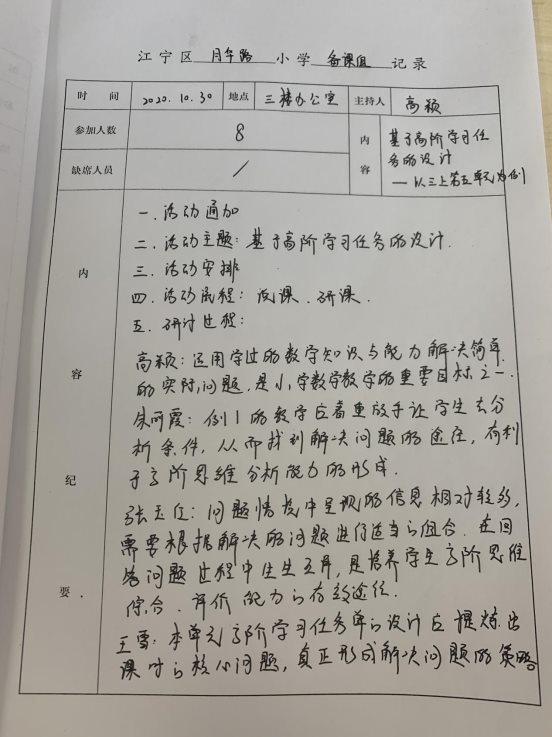 江宁区 月华路 小学 备课组 记录
时 间 2020.10.30 地点 三楼办公室 主持人 高颖
参加人数 8 内容 基于高阶学习任
务的设计
缺席人员 / — 以三上第五单元为例
内容纪要
一. 活动通知
二. 活动主题: 基于高阶学习任务的设计.
三. 活动安排
四. 活动流程: 说课. 研课.
五. 研讨过程:
高颖: 运用学过的数学知识与能力解决简单
的实际问题, 是小学数学教学的重要目标之一.
朱丽霞: 例1的教学应着重放手让学生去分
析条件, 从而找到解决问题的途径, 有利
于高阶思维分析能力的形成.
张主任: 问题情境中呈现的信息相对较多,
需要根据解决的问题进行适当的组合. 在回
答问题过程中生生互异, 是培养学生高阶思维
综合. 评价能力的有效途径.
王雪: 本单元高阶学习任务单的设计应提炼出
课时的核心问题, 真正形成解决问题的策略